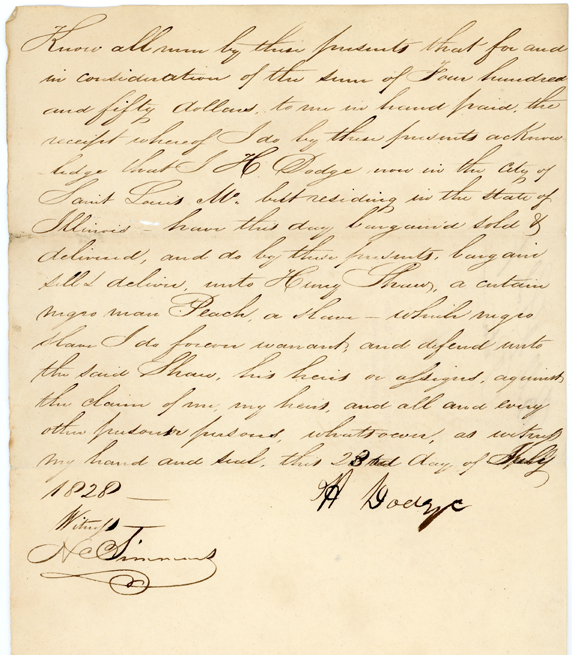 Know all men by these presents that for and
in consideration of the sum of Four hundred
and fifty dollars, to me in hand paid, the
receipt whereof I do by these presents acknow
ledge that I H Dodge now in the city of
Saint Louis Mo. but residing in the state of
Illinois – have this day bargain'd sold &
delivered, and do by these presents, bargain
sell & deliver, unto Henry Shaw, a certain
negro man Peach, a slave – which negro
slave I do forever warrant, and defend unto
the said Shaw, his heirs or assigns, against
the claim of me, my heirs, and all and every
other person or persons, whatsoever, as witness
my hand and seal, this 23rd day of July
1828 —
H Dodge
Witness
N Simmons